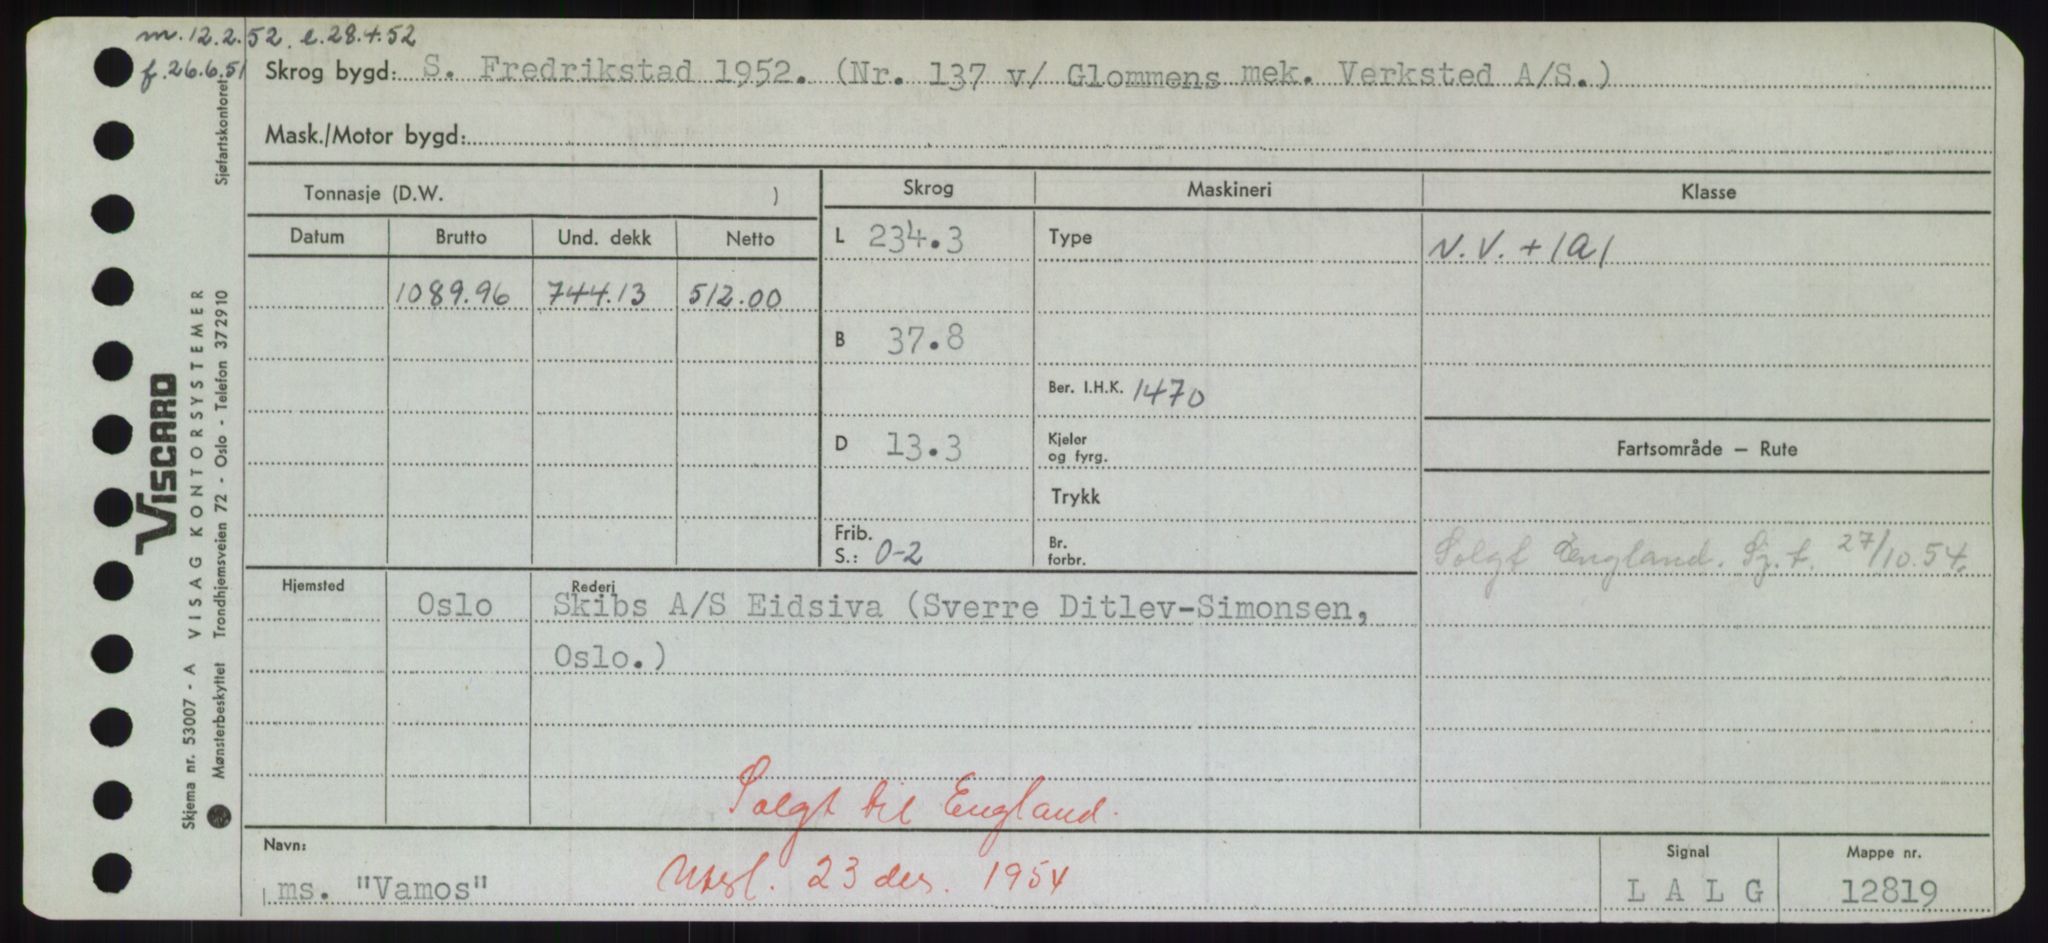 m. 12.2.52. e. 28.4.52
f. 26.6.51
Skrog bygd: S. Fredrikstad 1952. (Nr. 137 v/ Glommens mek. Verksted A/S.)
Mask./Motor bygd:
Tonnasje (D.W. )
Skrog
Maskineri
Klasse
Datum Brutto Und. dekk Netto
L 234.3
Type
N.V. + 1A1
1089.96 744.13 512.00
B 37.8
Ber. I.H.K. 1470
D 13.3
Kjeler
og fyrg.
Fartsområde — Rute
Trykk
Frib.
S.: 0-2
Br.
forbr.
Solgt England. Sj. t. 27/10.54.
Hjemsted
Oslo
Rederi
Skibs A/S Eidsiva (Sverre Ditlev-Simonsen,
Oslo.)
Solgt til England.
Navn:
ms. "Vamos"
Utsl. 23 des. 1954
Signal
L A L G
Mappe nr.
12819
Sjøfartskontoret
VISCARD
VISAG KONTORSYSTEMER
Skjema nr. 53007 - A
Mønsterbeskyttet Trondhjemsveien 72 - Oslo - Telefon 372910